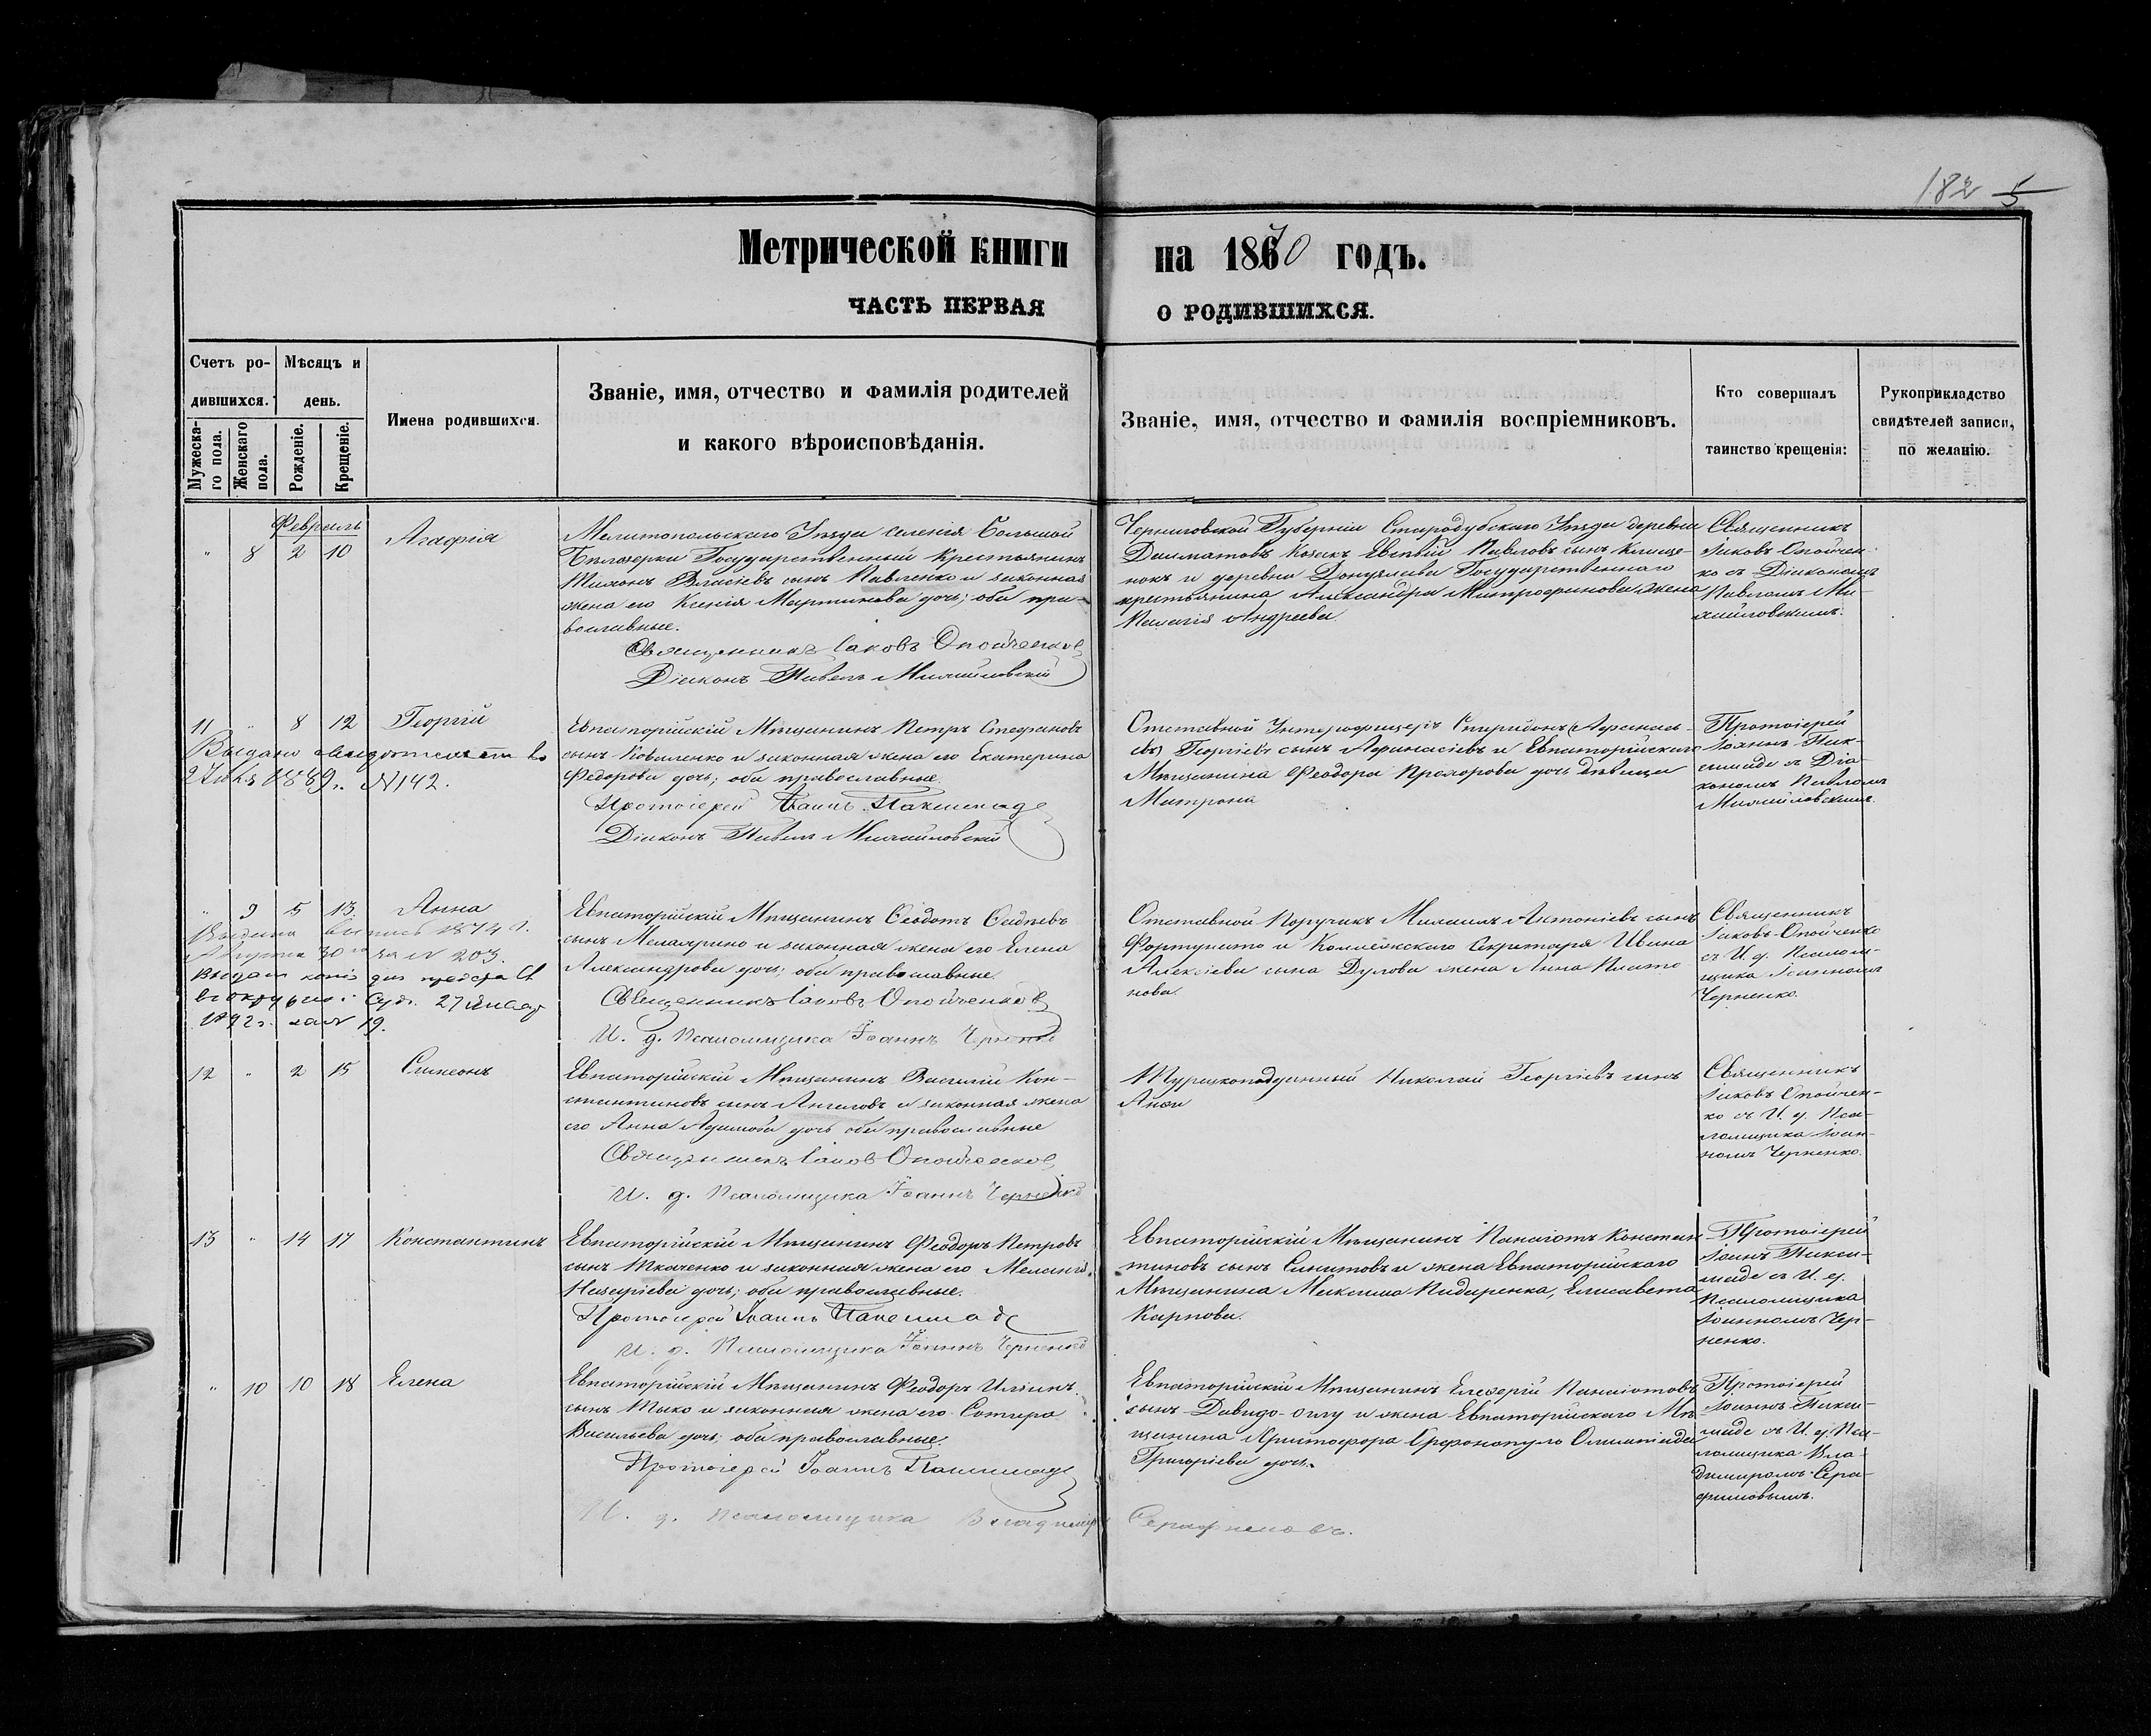 182 5
Метрической книги на 1870 годъ.
ЧАСТЬ ПЕРВАЯ О РОДИВШИХСЯ.
Счетъ ро-
дившихся.
Мужеска-
го пола.
Женскаго
пола.
Мѣсяцъ и
день.
Рожденіе.
Крещеніе.
Имена родившихся.
Званіе, имя, отчество и фамилія родителей
и какого вѣроисповѣданія.
Званіе, имя, отчество и фамилія воспріемниковъ.
Кто совершалъ
таинство крещенія:
Рукоприкладство
свидѣтелей записи,
по желанію.
Февраль
" 8 2 10 Агафія
Мелитопольскаго Уѣзда селенія Большой
Бѣлозерки Государственный Крестьянинъ
Власіевъ сынъ Павленко и законная
жена его Ксенія Мартинова дочь; оба пра-
вославные.
Священникъ Іаковъ Опойченко
Діаконъ Павелъ Михайловскій
Черниговской Губерніи Стародубскаго Уѣзда деревни
Козакъ Евсевій Павловъ сынъ
нокъ и деревни Государственнаго
крестьянина Александра Митрофанова жена
Палагія Андреева.
Священникъ
Іаковъ Опойчен-
ко съ Діакономъ
Павломъ Ми-
хайловскимъ.
11 " 8 12 Георгій
Выдано свидѣтельство
2 Іюля 1889 г. N 142.
Евпаторійскій Мѣщанинъ Петръ Стефановъ
сынъ Коваленко и законная жена его Екатерина
Федорова дочь; оба православные.
Протоіерей Іоаннъ
Діаконъ Павелъ Михайловскій
Отставной Унтерофицеръ Спиридонъ (Афанась-
евъ) Георгіевъ сынъ Афанасіевъ и Евпаторійскаго
Мѣщанина Феодора Прохорова дочь дѣвица
Матрона
Протоіерей
Іоаннъ
съ Діа-
кономъ Павломъ
Михайловскимъ.
" 9 5 13 Анна
Выдана выпись 1874 г.
Августа 30го за N 203.
Выдана копія для предста
въ окружн. Судъ. 27 Января
1892 г. за N 19.
Евпаторійскій Мѣщанинъ Феодотъ
сынъ и законная жена его Елена
Александрова дочь; оба православные.
Священникъ Іаковъ Опойченко
И. д. Псаломщика Іоаннъ Черненко
Отставной Поручикъ Михаилъ Антоніевъ сынъ
Фортунато и Коллежскаго Секретаря Ивана
Алексіева сына Дулова жена Анна Плато
нова.
Священникъ
Іаковъ Опойченко
съ И. д. Псалом-
щика Іоанномъ
Черненко.
12 " 2 15 Симеонъ
Евпаторійскій Мѣщанинъ Василій Кон-
стантиновъ сынъ Ангеловъ и законная жена
его Анна Адамова дочь оба православные
Священникъ Іаковъ Опойченко
И. д. Псаломщика Іоаннъ Черненко
Турецкоподданный Николай Георгіевъ сынъ
Священникъ
Іаковъ Опойчен-
ко съ И. д. Пса-
ломщика Іоан-
номъ Черненко.
13 " 14 17 Константинъ
Евпаторійскій Мѣщанинъ Феодоръ Петровъ
сынъ Ткаченко и законная жена его Меланія
Назаріева дочь; оба православные.
Протоіерей Іоаннъ
И. д. Псаломщика Іоаннъ Черненко
Евпаторійскій Мѣщанинъ Панаіотъ Констан
тиновъ сынъ и жена Евпаторійскаго
Мѣщанина Максима Пидаренка, Елисавета
Карпова.
Протоіерей
Іоаннъ
съ И. д.
Псаломщика
Іоанномъ Чер-
ненко.
" 10 10 18 Елена
Евпаторійскій Мѣщанинъ Феодоръ Иліинъ
сынъ и законная жена его Сотира
Васильева дочь; оба православные.
Протоіерей Іоаннъ
И. д. Псаломщика Владиміръ Серафимовъ.
Евпаторійскій Мѣщанинъ Елеѳерій Панаіотовъ
сынъ Давидо-оглу и жена Евпаторійскаго Мѣ-
щанина Христофора Олимпіада
Григоріева дочь.
Протоіерей
Іоаннъ
съ И. д. Пса-
ломщика Вла-
димиромъ Сера-
фимовымъ.